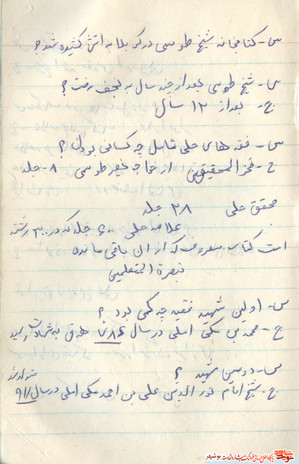 س- کتابخانه شیخ طوسی در کربلا به آتش کشیده شد؟
س- شیخ طوسی بعد از چند سال به نجف رفت؟
ج- بعد از ۱۲ سال
س- فقه های حلی شامل چه کسانی بودند؟
ج- فخرالمحققین از خواجه نصیر طوسی ۸ جلد
محقق حلی ۲۸ جلد
علامه حلی ۶۰۰ جلد که در ۳۰ رشته
است کتاب معروف که از آن باقی مانده
تبصرة المتعلمین
س- اولین شهید فقیه چه کسی بود؟
ج- محمد بن مکی عاملی در سال ۷۸۶ هـ ق به شهادت رسید
س- دومین شهید؟
ج- شیخ امام نور الدین علی بن احمد مکی عاملی در سال ۹۱۱
متولد شد